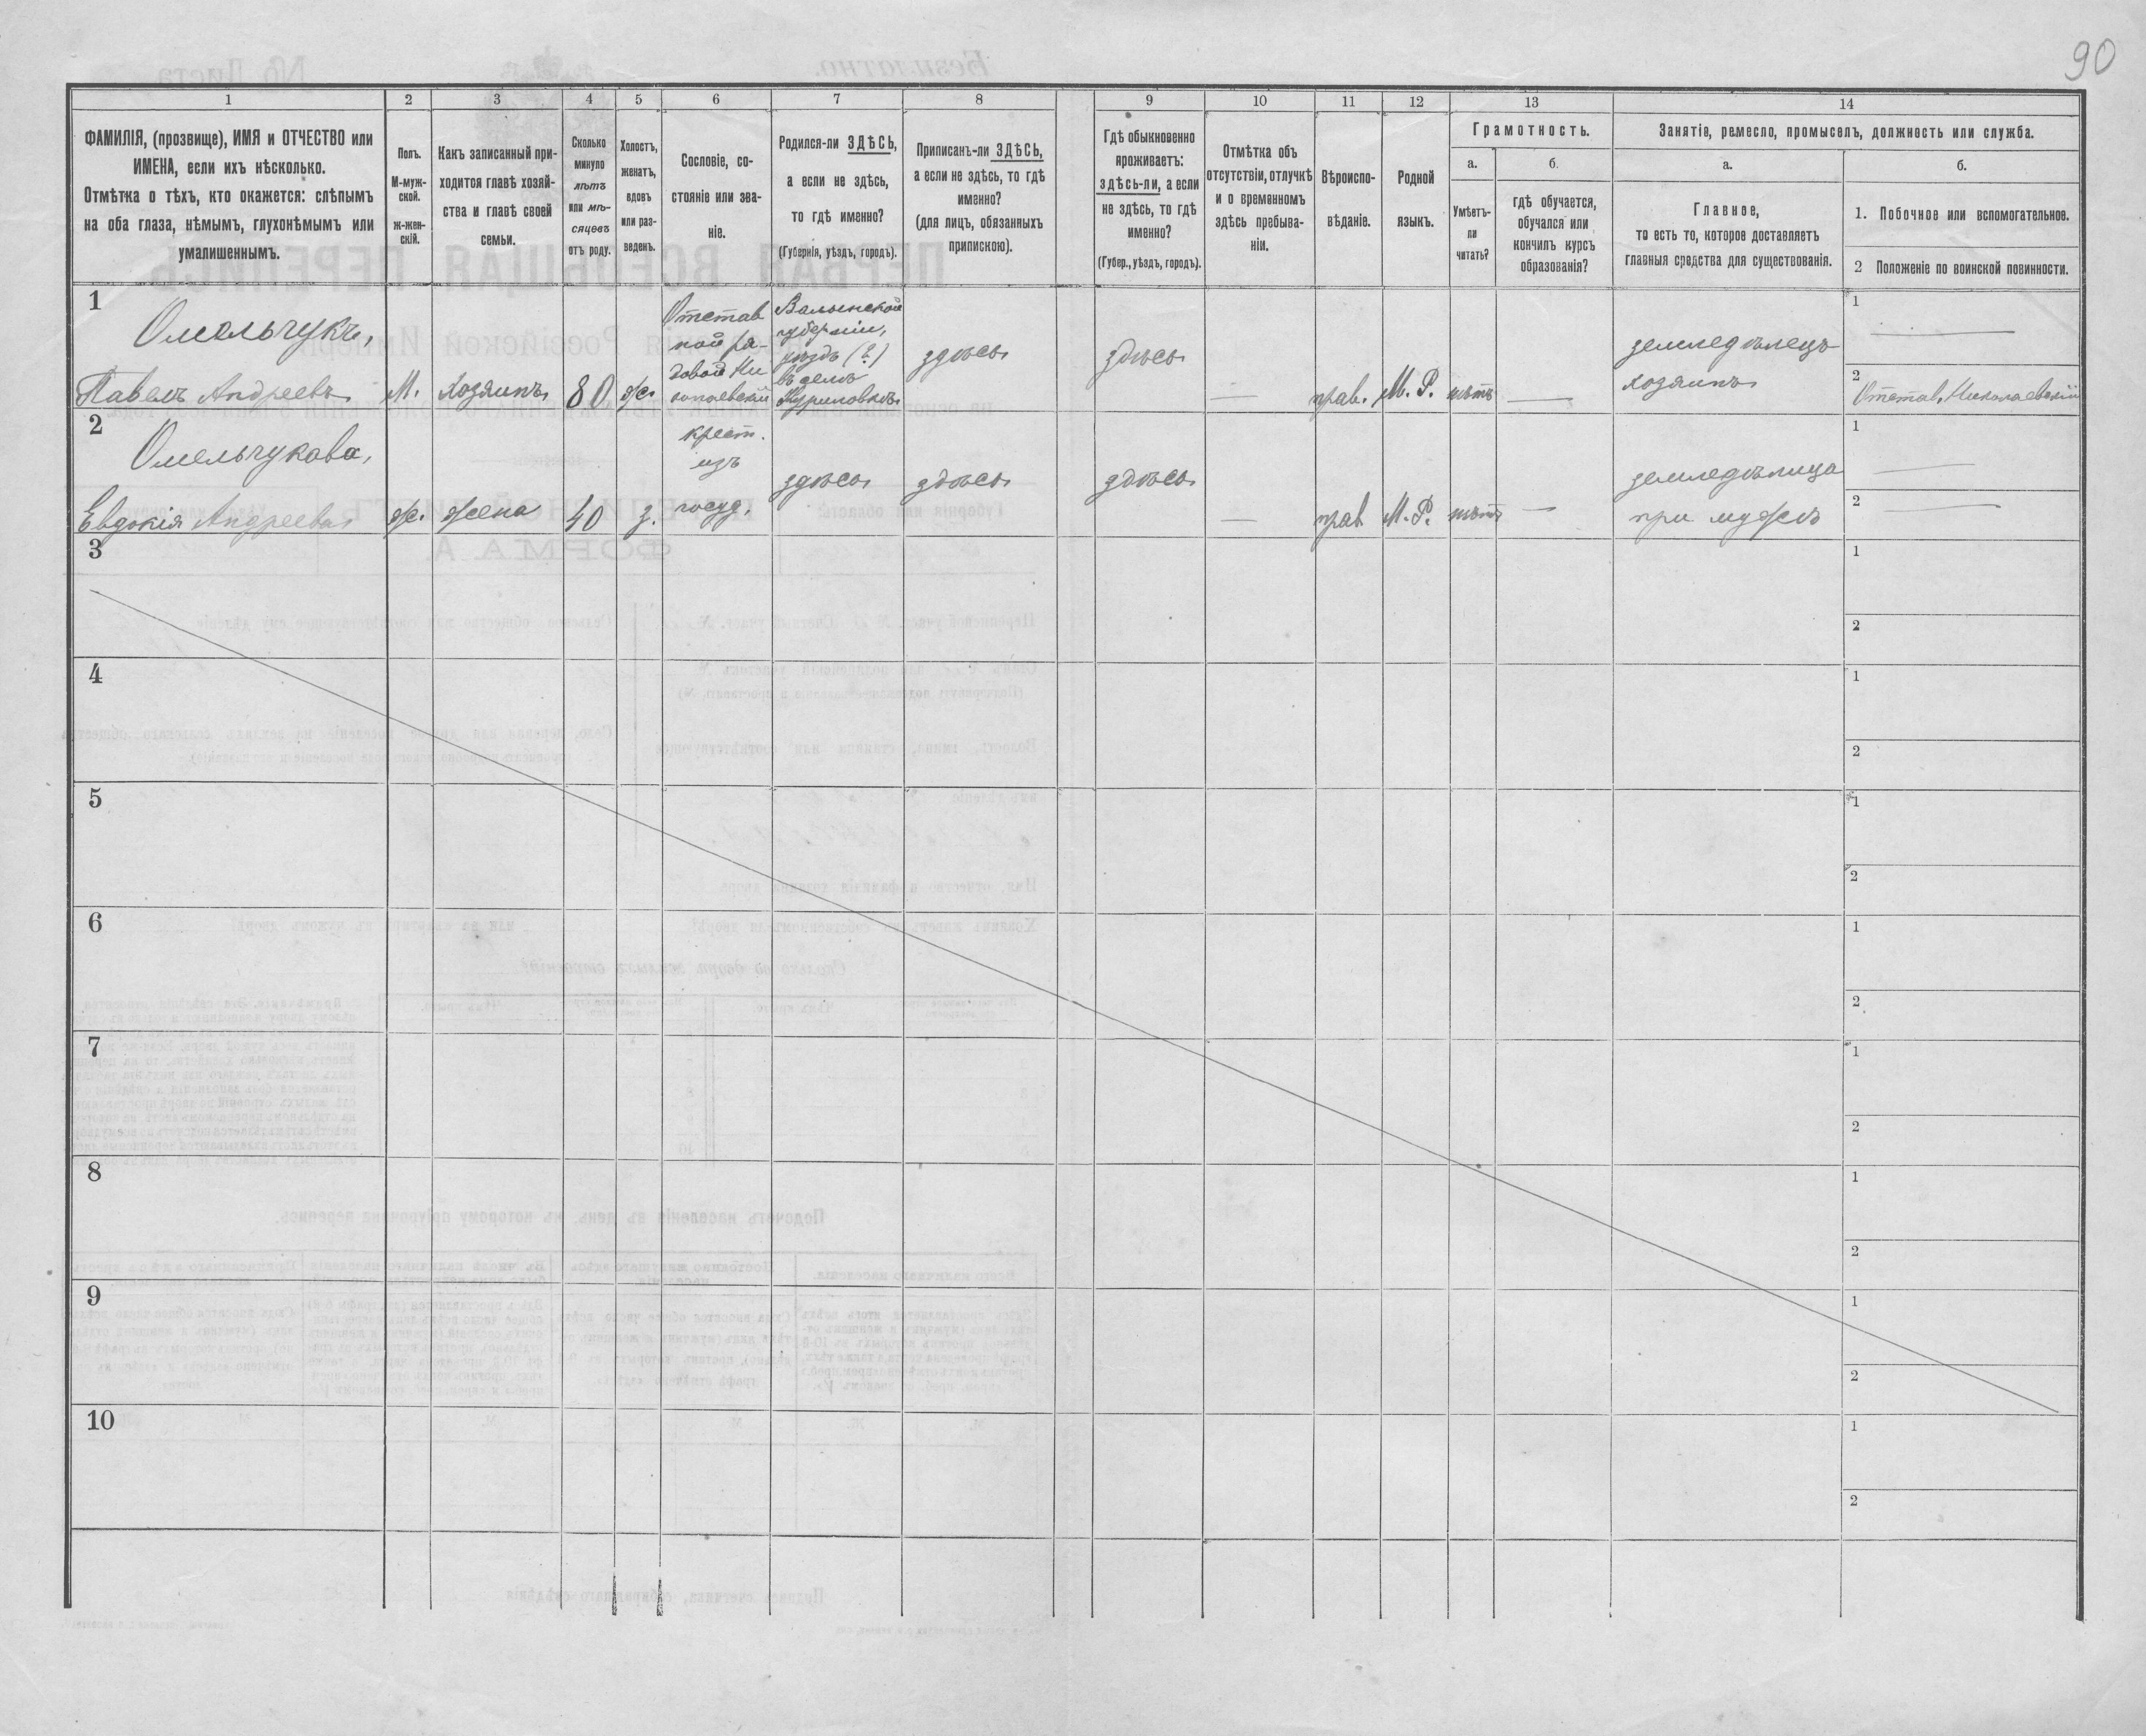 90
1 2 3 4 5 6 7 8 9 10 11 12 13 14
ФАМИЛІЯ, (прозвище), ИМЯ и ОТЧЕСТВО или
ИМЕНА, если ихъ нѣсколько.
Отмѣтка о тѣхъ, кто окажется: слѣпымъ
на оба глаза, нѣмымъ, глухонѣмымъ или
умалишеннымъ.
Полъ.
М-муж-
ской.
ж-жен-
скій.
Какъ записанный при-
ходится главѣ хозяй-
ства и главѣ своей
семьи.
Сколько
минуло
лѣтъ
или мѣ-
сяцевъ
отъ роду.
Холостъ,
женатъ,
вдовъ
или раз-
веденъ.
Сословіе, со-
стояніе или зва-
ніе.
Родился-ли ЗДѢСЬ,
а если не здѣсь,
то гдѣ именно?
(Губернія, уѣздъ, городъ).
Приписанъ-ли ЗДѢСЬ,
а если не здѣсь, то гдѣ
именно?
(для лицъ, обязанныхъ
припискою).
Гдѣ обыкновенно
проживаетъ:
здѣсь-ли, а если
не здѣсь, то гдѣ
именно?
(Губер., уѣздъ, городъ).
Отмѣтка объ
отсутствіи, отлучкѣ
и о временномъ
здѣсь пребыва-
ніи.
Вѣроиспо-
вѣданіе.
Родной
языкъ.
Грамотность.
а.
Умѣетъ-
ли
читать?
б.
гдѣ обучается,
обучался или
кончилъ курсъ
образованія?
Занятіе, ремесло, промыселъ, должность или служба.
а.
Главное,
то есть то, которое доставляетъ
главныя средства для существованія.
б.
1. Побочное или вспомогательное.
2 Положеніе по воинской повинности.
1
Омельчукъ,
Павелъ Андреевъ
М.
Хозяинъ
80
ж.
Отстав
ной ря-
довой Ни
колаевскій
Волынской
губерніи,
уѣздъ (?)
въ селѣ
Куриловкѣ
здѣсь
здѣсь
—
прав.
М. Р.
нѣтъ
—
земледѣлецъ
хозяинъ
1 —
2 Отстав. Николаевскій
2
Омельчукова,
Евдокія Андреева
ж.
жена
40
з.
крест.
изъ
госуд.
здѣсь
здѣсь
здѣсь
—
прав
М. Р.
нѣтъ
—
земледѣлица
при мужѣ
1 —
2 —
3
1
2
4
1
2
5
1
2
6
1
2
7
1
2
8
1
2
9
1
2
10
1
2